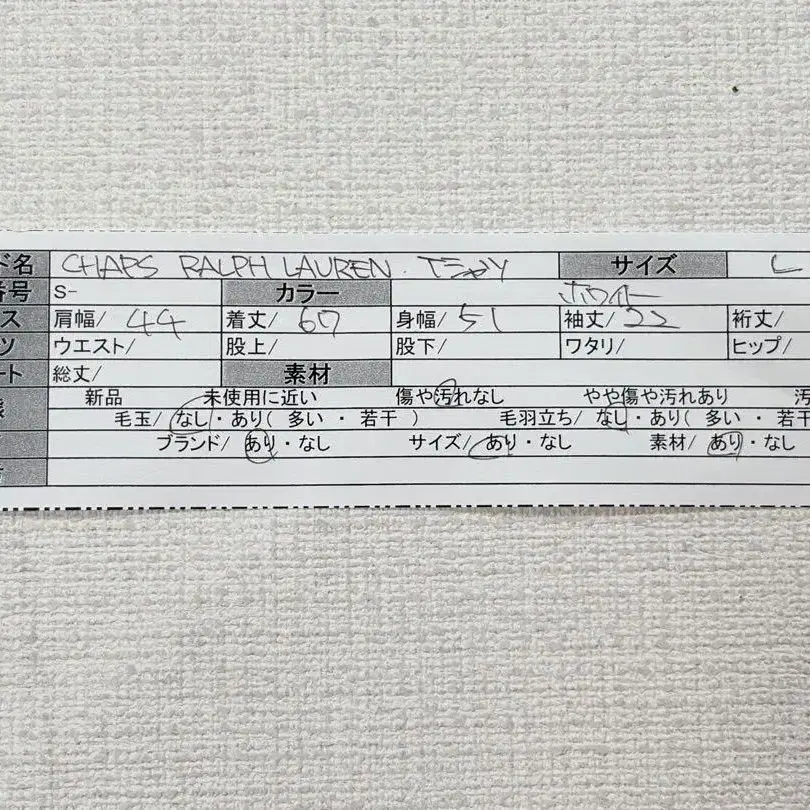 ド名 CHAPS RALPH LAUREN. Tシャツ サイズ L
番号 S- カラー ホワイト
ス 肩幅/ 44 着丈/ 67 身幅/ 51 袖丈/ 22 裄丈/
ツ ウエスト/ 股上/ 股下/ ワタリ/ ヒップ/
ート 総丈/ 素材
態 新品 未使用に近い 傷や汚れなし やや傷や汚れあり 汚
毛玉/ なし・あり( 多い ・ 若干 ) 毛羽立ち/ なし・あり( 多い ・ 若干
ブランド/ あり・なし サイズ/ あり・なし 素材/ あり・なし